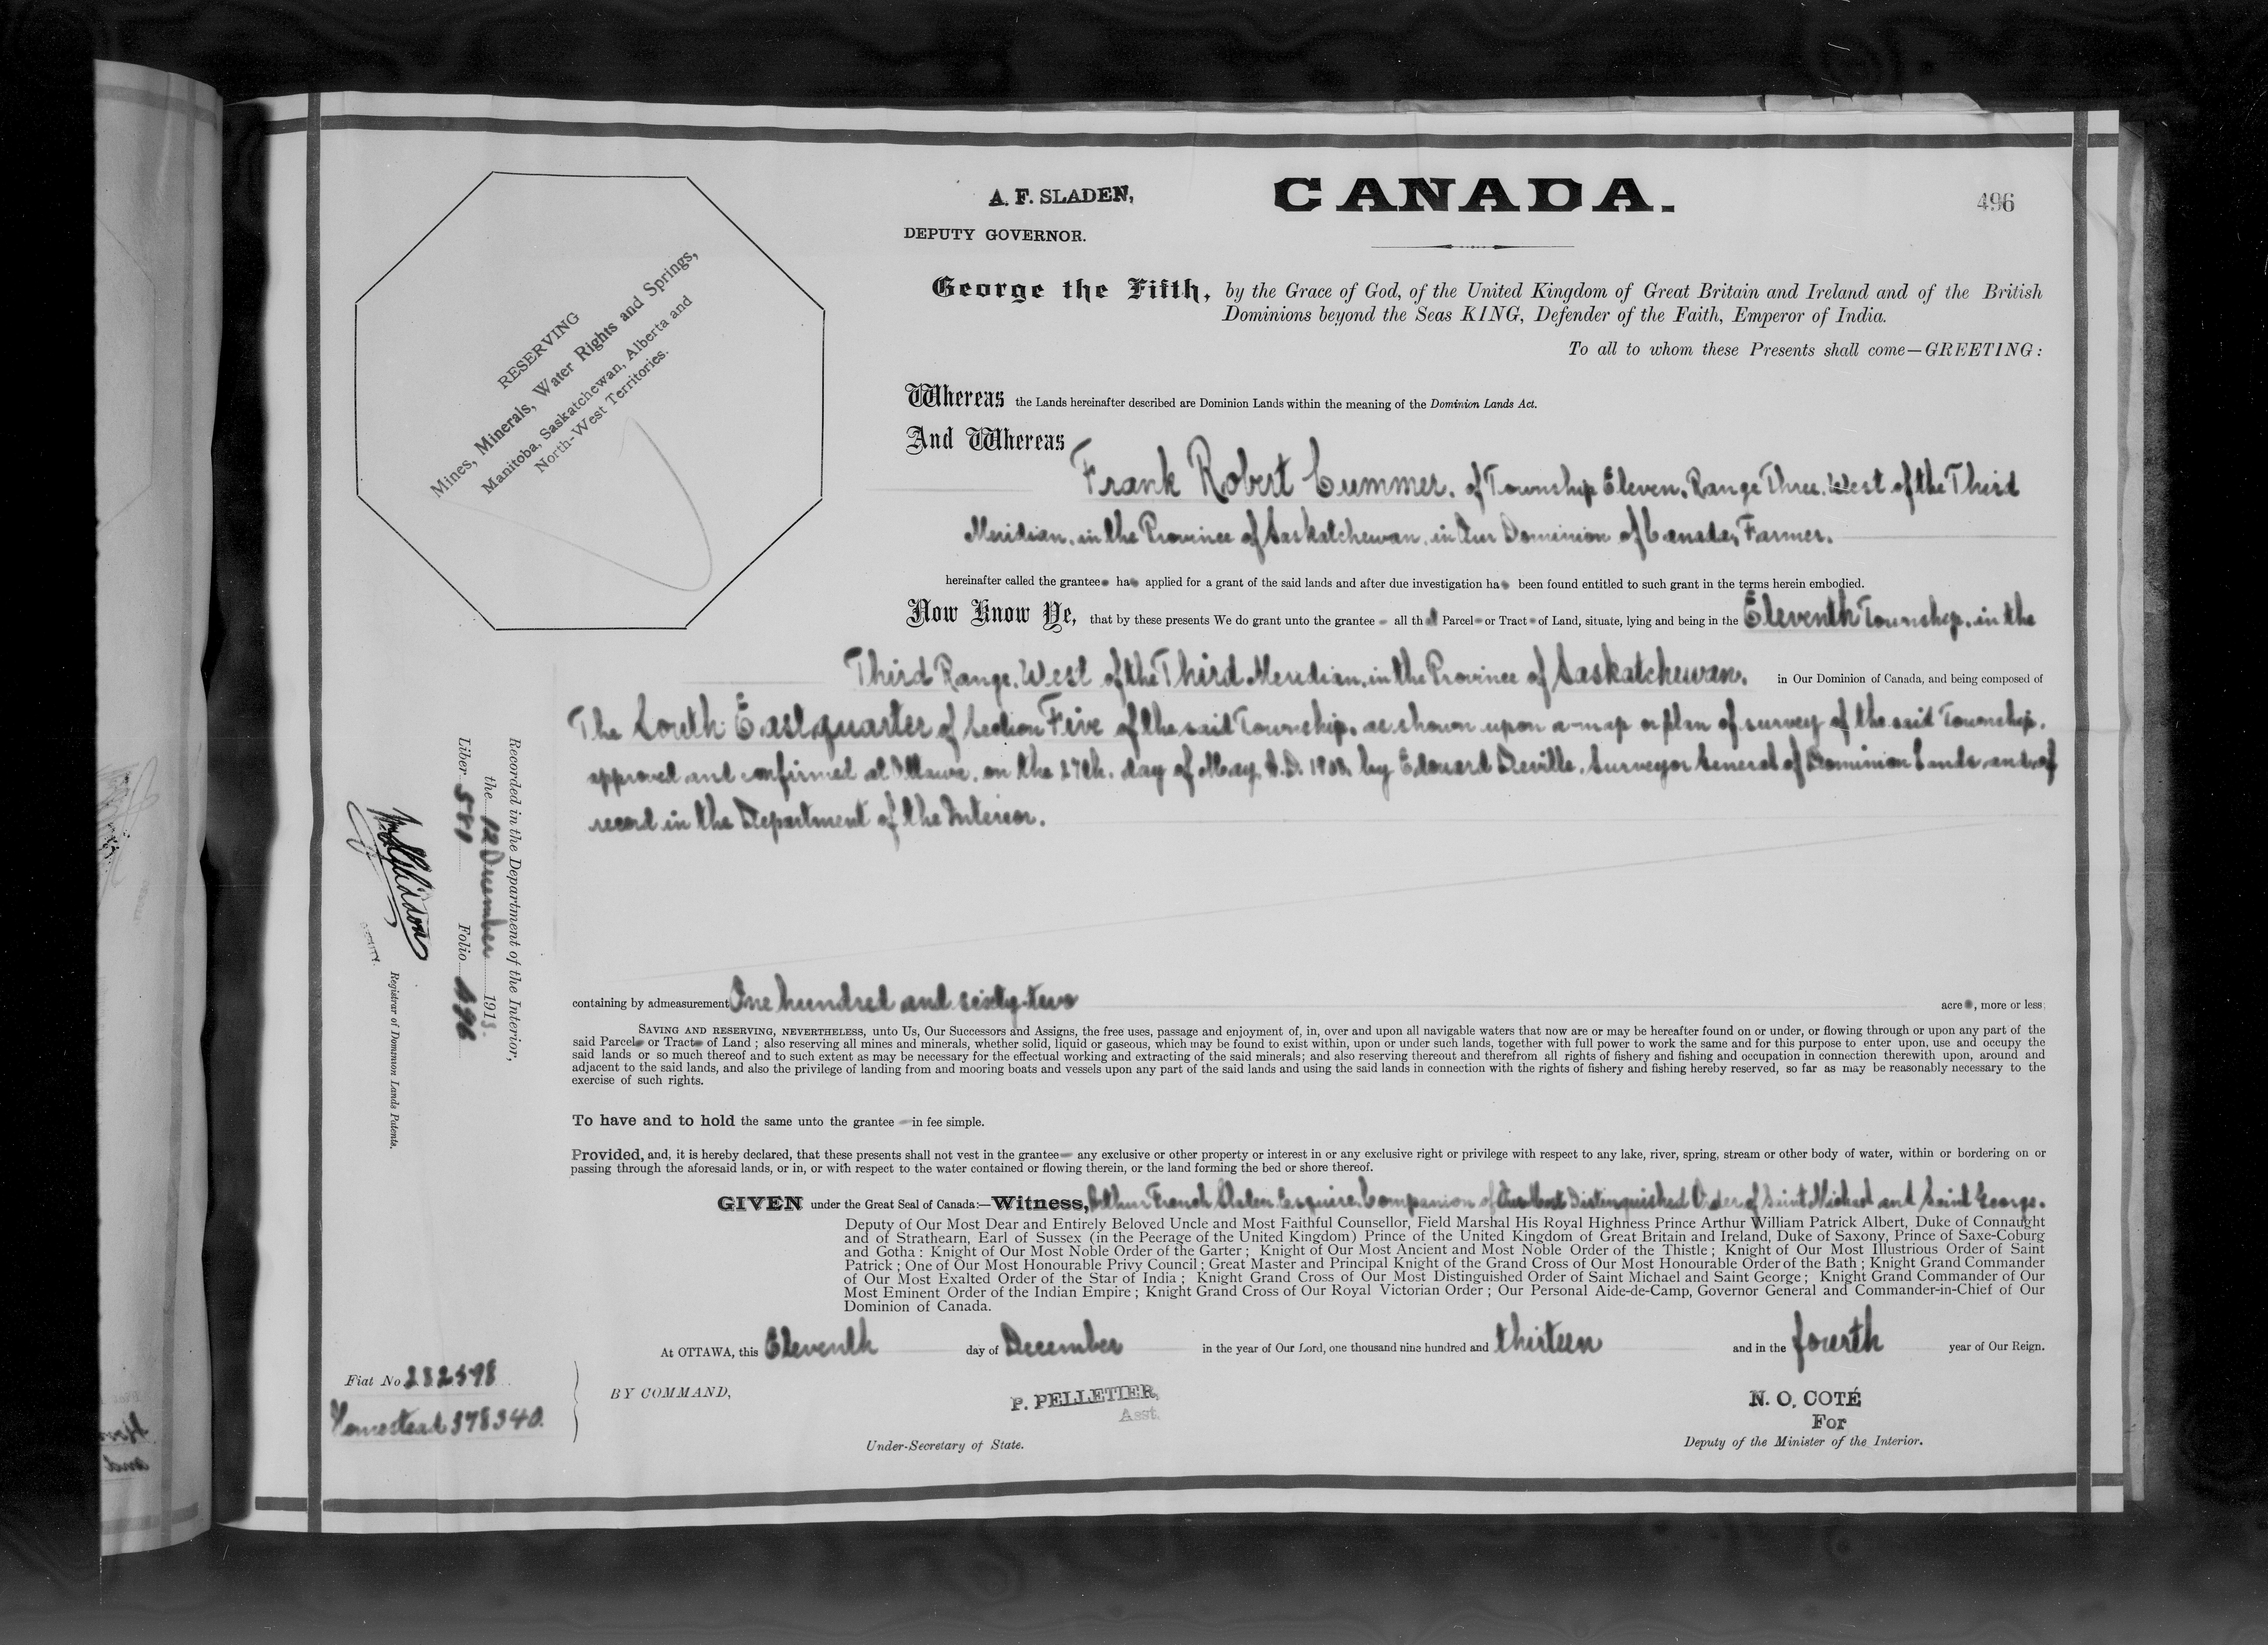 496
A. F. SLADEN,
DEPUTY GOVERNOR.
CANADA.
RESERVING
Mines, Minerals, Water Rights and Springs,
Manitoba, Saskatchewan, Alberta and
North-West Territories.
George the Fifth, by the Grace of God, of the United Kingdom of Great Britain and Ireland and of the British
Dominions beyond the Seas KING, Defender of the Faith, Emperor of India.
To all to whom these Presents shall come—GREETING:
Whereas the Lands hereinafter described are Dominion Lands within the meaning of the Dominion Lands Act.
And Whereas
Frank Robert Cummer, of Township Eleven, Range Three, West of the Third
Meridian, in the Province of Saskatchewan, in Our Dominion of Canada, Farmer.
hereinafter called the grantee has applied for a grant of the said lands and after due investigation has been found entitled to such grant in the terms herein embodied.
Now Know Ye, that by these presents We do grant unto the grantee all that Parcel or Tract of Land, situate, lying and being in the Eleventh Township, in the
Third Range, West of the Third Meridian, in the Province of Saskatchewan, in Our Dominion of Canada, and being composed of
The South East quarter of Section Five of the said Township, as shown upon a map or plan of survey of the said Township,
approved and confirmed at Ottawa, on the 27th. day of May, A.D. 1908, by Edouard Deville, Surveyor General of Dominion Lands and of
record in the Department of the Interior.
containing by admeasurement One hundred and sixty-two acres, more or less.
SAVING AND RESERVING, NEVERTHELESS, unto Us, Our Successors and Assigns, the free uses, passage and enjoyment of, in, over and upon all navigable waters that now are or may be hereafter found on or under, or flowing through or upon any part of the
said Parcel or Tract of Land; also reserving all mines and minerals, whether solid, liquid or gaseous, which may be found to exist within, upon or under such lands, together with full power to work the same and for this purpose to enter upon, use and occupy the
said lands or so much thereof and to such extent as may be necessary for the effectual working and extracting of the said minerals; and also reserving thereout and therefrom all rights of fishery and fishing and occupation in connection therewith upon, around and
adjacent to the said lands, and also the privilege of landing from and mooring boats and vessels upon any part of the said lands and using the said lands in connection with the rights of fishery and fishing hereby reserved, so far as may be reasonably necessary to the
exercise of such rights.
To have and to hold the same unto the grantee in fee simple.
Provided, and, it is hereby declared, that these presents shall not vest in the grantee any exclusive or other property or interest in or any exclusive right or privilege with respect to any lake, river, spring, stream or other body of water, within or bordering on or
passing through the aforesaid lands, or in, or with respect to the water contained or flowing therein, or the land forming the bed or shore thereof.
GIVEN under the Great Seal of Canada:—Witness, Arthur French Sladen Esquire, Companion of Our Most Distinguished Order of Saint Michael and Saint George.
Deputy of Our Most Dear and Entirely Beloved Uncle and Most Faithful Counsellor, Field Marshal His Royal Highness Prince Arthur William Patrick Albert, Duke of Connaught
and of Strathearn, Earl of Sussex (in the Peerage of the United Kingdom) Prince of the United Kingdom of Great Britain and Ireland, Duke of Saxony, Prince of Saxe-Coburg
and Gotha: Knight of Our Most Noble Order of the Garter; Knight of Our Most Ancient and Most Noble Order of the Thistle; Knight of Our Most Illustrious Order of Saint
Patrick; One of Our Most Honourable Privy Council; Great Master and Principal Knight of the Grand Cross of Our Most Honourable Order of the Bath; Knight Grand Commander
of Our Most Exalted Order of the Star of India; Knight Grand Cross of Our Most Distinguished Order of Saint Michael and Saint George; Knight Grand Commander of Our
Most Eminent Order of the Indian Empire; Knight Grand Cross of Our Royal Victorian Order; Our Personal Aide-de-Camp, Governor General and Commander-in-Chief of Our
Dominion of Canada.
At OTTAWA, this Eleventh day of December in the year of Our Lord, one thousand nine hundred and thirteen and in the fourth year of Our Reign.
BY COMMAND,
P. PELLETIER,
Asst.
Under-Secretary of State.
N. O. COTÉ
For
Deputy of the Minister of the Interior.
Fiat No 282598
Homestead 378340.
Recorded in the Department of the Interior,
the 12 December 1913
Liber 581 Folio 496
DEPUTY.
Registrar of Dominion Lands Patents.